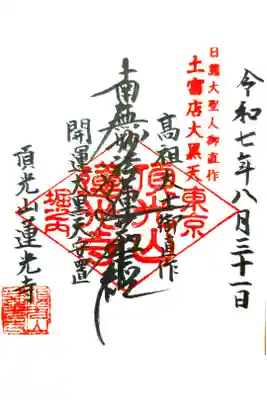 令和七年八月三十一日
日蓮大聖人御直作
土富店大黒天
東京
高祖大士御直作
頂光山
南無妙法蓮華経
蓮光寺
開運大黒天安置
堀之内
頂光山蓮光寺